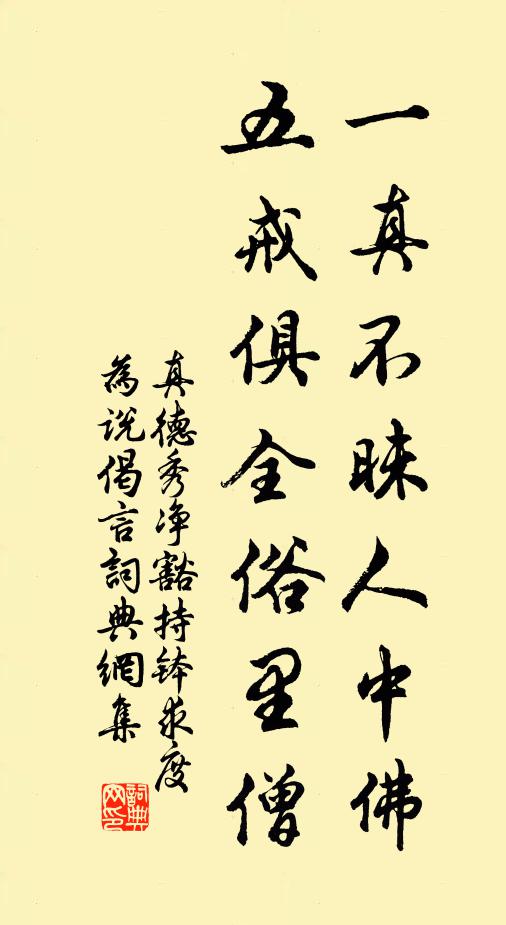 一真不昧人中佛
五戒俱全俗里僧
真德秀净豁持钵求度
為说偈言詞典網集
詞典网印